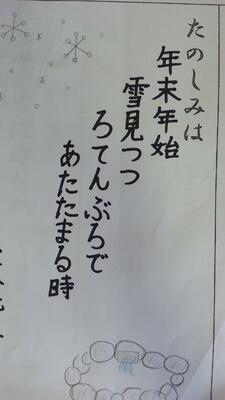 たのしみは
年末年始
雪見つつ
ろてんぶろで
あたたまる時